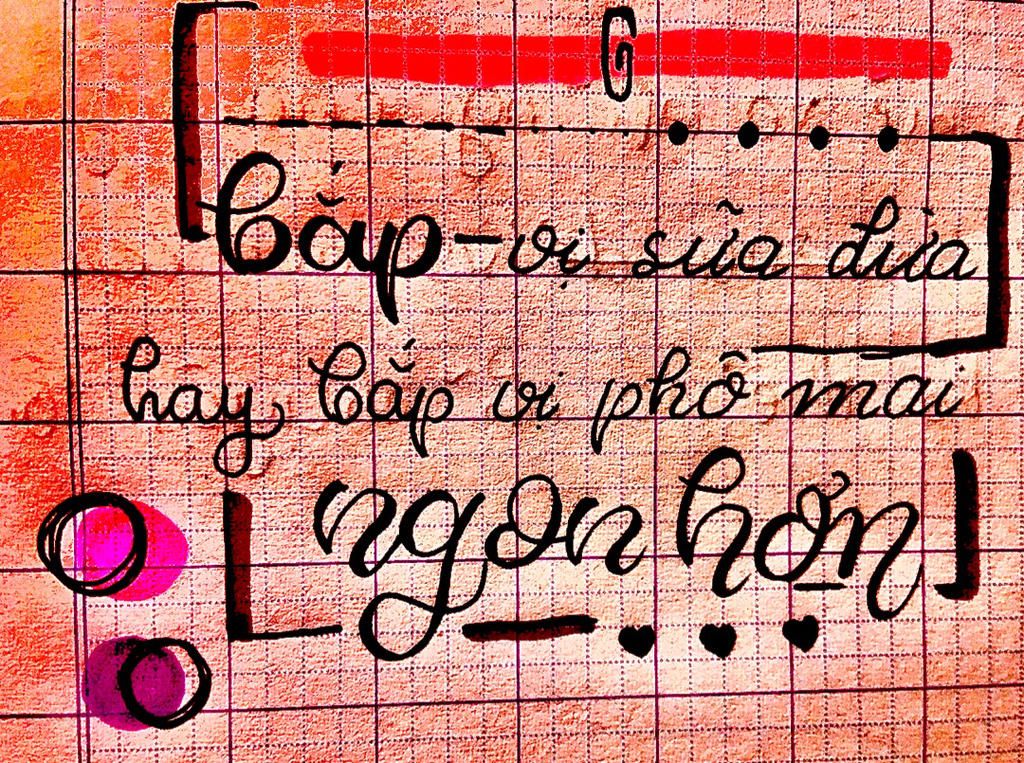 G
bắp - vị sữa dừa
hay bắp vị phô mai
ngon hơn